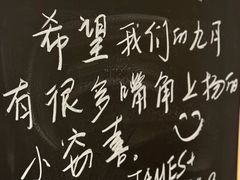 希望我们的九月
有很多嘴角上扬的
小窃喜.
JAMES+